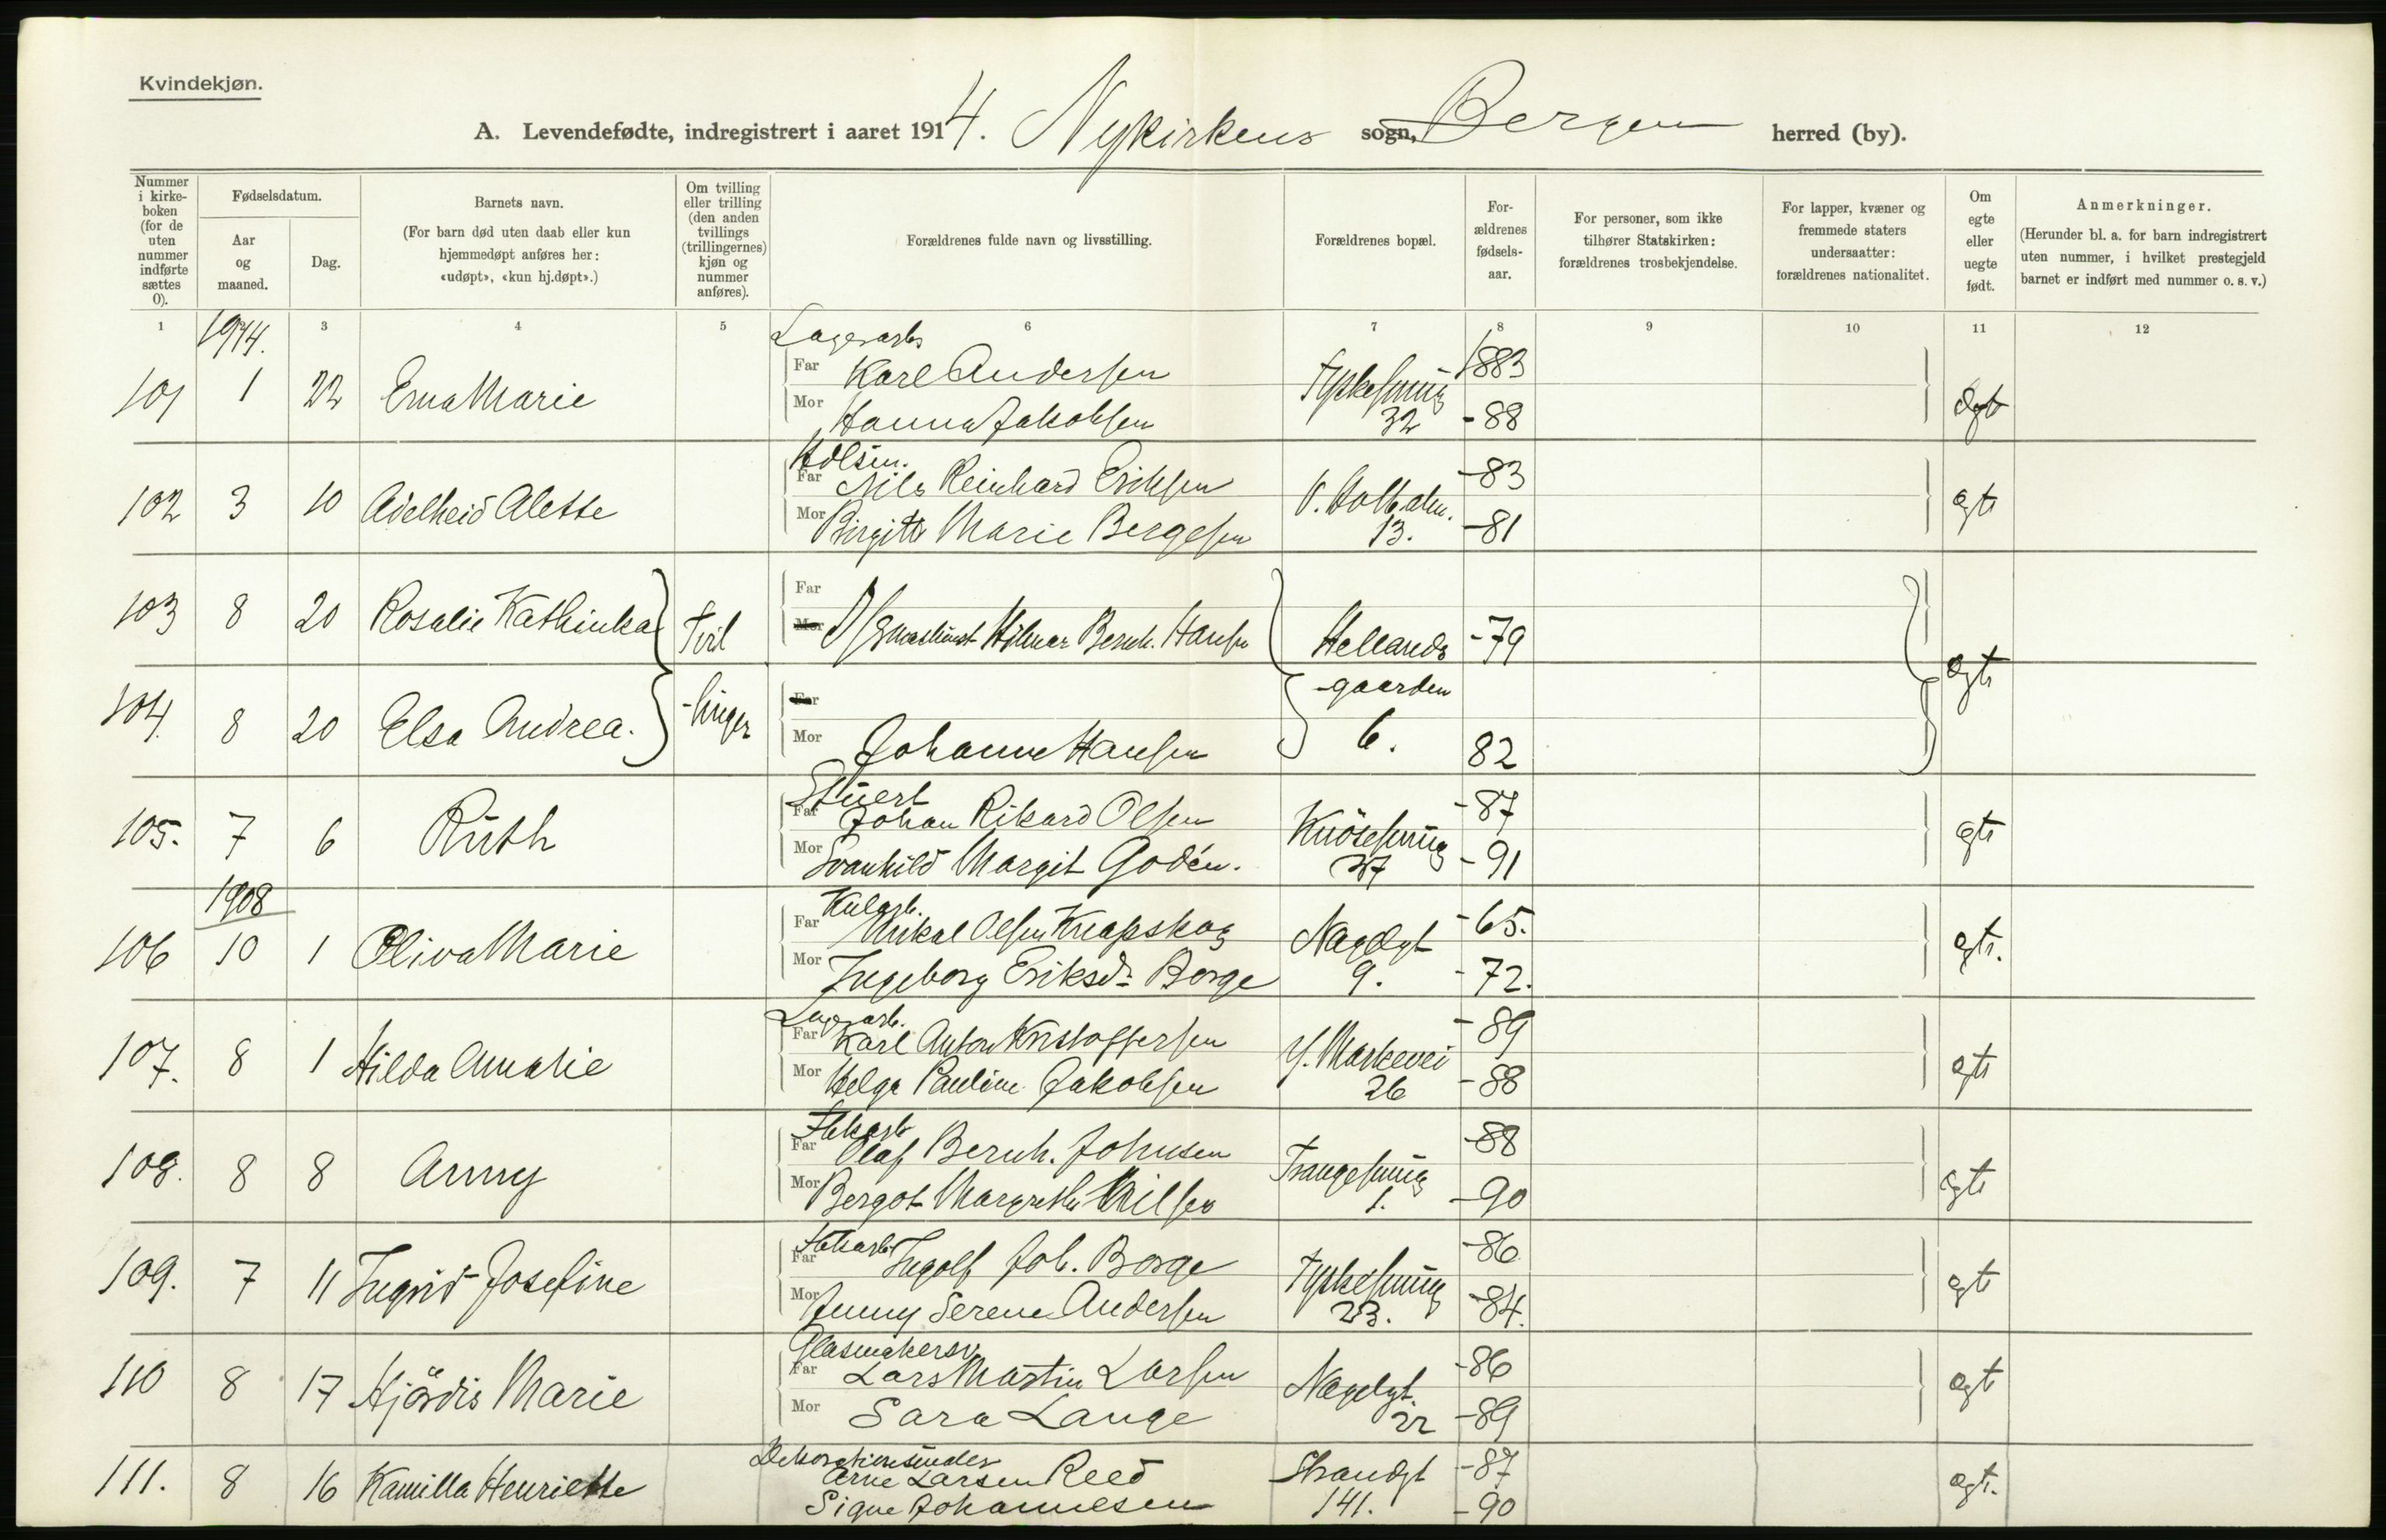 Kvindekjøn.
A. Levendefødte, indregistrert i aaret 1914. Nykirkens sogn, Bergen herred (by).
Nummer i kirke-boken (for de uten nummer indførte sættes 0).
Fødselsdatum.
Aar og maaned.
Dag.
Barnets navn.
(For barn død uten daab eller kun hjemmedøpt anføres her: «udøpt», «kun hj.døpt».)
Om tvilling eller trilling (den anden tvillings (trillingernes) kjøn og nummer anføres).
Forældrenes fulde navn og livsstilling.
Forældrenes bopæl.
For-ældrenes fødsels-aar.
For personer, som ikke tilhører Statskirken: forældrenes trosbekjendelse.
For lapper, kvæner og fremmede staters undersaatter: forældrenes nationalitet.
Om egte eller uegte født.
Anmerkninger.
(Herunder bl. a. for barn indregistrert uten nummer, i hvilket prestegjeld barnet er indført med nummer o. s. v.)
1 3 4 5 6 7 8 9 10 11 12
1914.
Lagerarb
101 1 22 Erna Marie Far Karl Andersen Tyskesmug 1883
Mor Hanna Jakobsen 32 -88 Ægte
102 3 10 Adelheid Alette Far Nils Reinhard Eriksen -83
Mor Birgitte Marie Bergesen 13. -81 ægte
103 8 20 Rosalie Kathinka Tvil Far
Mor Hilmar Bernh. Hansen Hellands -79
104. 8 20 Elsa Andrea. -linger Far -gaarden ægte
Mor Johanne Hansen 6. 82
Stuert
105. 7 6 Ruth Far Johan Rikard Olsen Knösesmug -87
Mor Svanhild Margit Godén. 27 -91 ægte
1908
Kularb.
106 10 1 Oliva Marie Far Mikal Olsen Knapskog Nagelgt -65.
Mor Ingeborg Eriksd. Borge 9. -72. ægte.
Lagerarb.
107. 8 1 Hilda Amalie Far Karl Anton Kristoffersen Y. Markevei -89
Mor Helga Pauline Jakobsen 26 -88 ægte
Fabarb
108. 8 8 Anny Far Olaf Bernh. Johnsen Trangesmug -88
Mor Bergot Margrethe Nilsen 1. -90 ægte
Fabarb
109. 7 11 Ingrid Josefine Far Ingolf Joh. Borge Tyskesmug -86
Mor Jenny Serene Andersen 23. -84. ægte
Glasmakersv
110 8 17 Hjördis Marie Far Lars Martin Larsen Nagelgt. -86
Mor Sara Lange 22 -89 ægte
Dekorationsmaler
111. 8 16 Kamilla Henriette Arne Larsen Reed Strandgt -87
Signe Johannesen 141. -90 ægte.